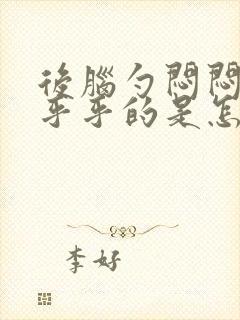 後腦勺悶悶
乎乎的是怎
李好